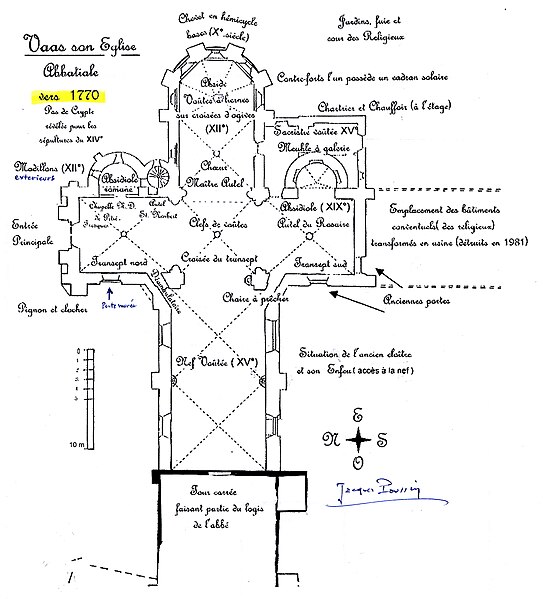 Vaas son Eglise
Abbatiale
vers 1770
Pas de Crypte
révêlée pour les
sépultures du XIV°
Modillons (XII°)
exterieurs
Chevet en hémicycle
bases (X° siècle)
Jardins, fuie et
cour des Religieux
Contre-forts l'un possède un cadran solaire
Chartrier et Chauffoir (à l'étage)
Abside
Voûtes à liernes
sur croisées d'ogives
(XII°)
Sacristie voûtée XV°
Meuble à galerie
Chœur
Maître Autel
Absidiole
romane
Chapelle N.D.
de Pitié
Fresques
Autel
St. Norbert
Absidiole (XIX°)
Autel du Rosaire
Clefs de voûtes
Entrée
Principale
Emplacement des bâtiments
conventuels( des religieux)
transformés en usine (détruits en 1981)
Transept nord
Croisée du transept
Transept sud
Déambulatoire
Chaire à prêcher
Anciennes portes
Pignon et clocher
Porte murée
Nef Voûtée ( XV°)
Situation de l'ancien cloître
et son Enfeu( accès à la nef )
10 m
E
N S
O
Jacques Poussin
Tour carrée
faisant partie du logis
de l'abbé